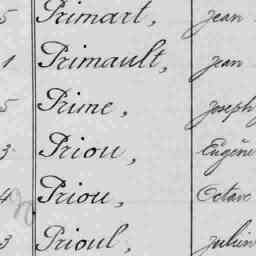 5 Primart, Jean
1 Primault, Jean
5 Prime, Joseph
3 Priou, Eugène
4 Priou, Octave
3 Prioul, Julien